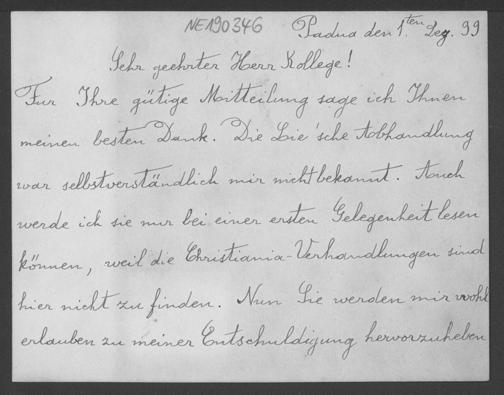 NE190346
Padua den 1.ten Dez. 99
Sehr geehrter Herr Kollege!
Für Ihre gütige Mitteilung sage ich Ihnen
meinen besten Dank. Die Lie'sche Abhandlung
war selbstverständlich mir nicht bekannt. Auch
werde ich sie nur bei einer ersten Gelegenheit lesen
können, weil die Christiania-Verhandlungen sind
hier nicht zu finden. Nun Sie werden mir wohl
erlauben zu meiner Entschuldigung hervorzuheben